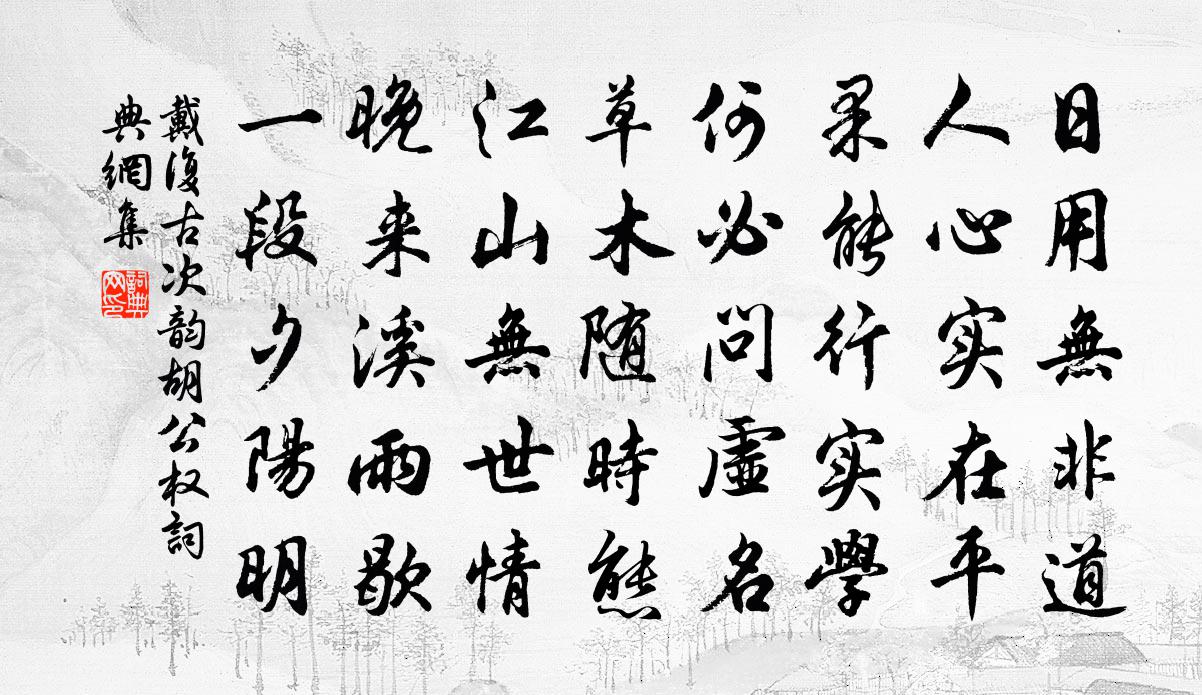 日用無非道
人心实在平
果能行实學
何必问虛名
草木随時態
江山無世情
晚来溪雨歇
一段夕陽明
戴復古次韵胡公权詞
典網集
詞典网印